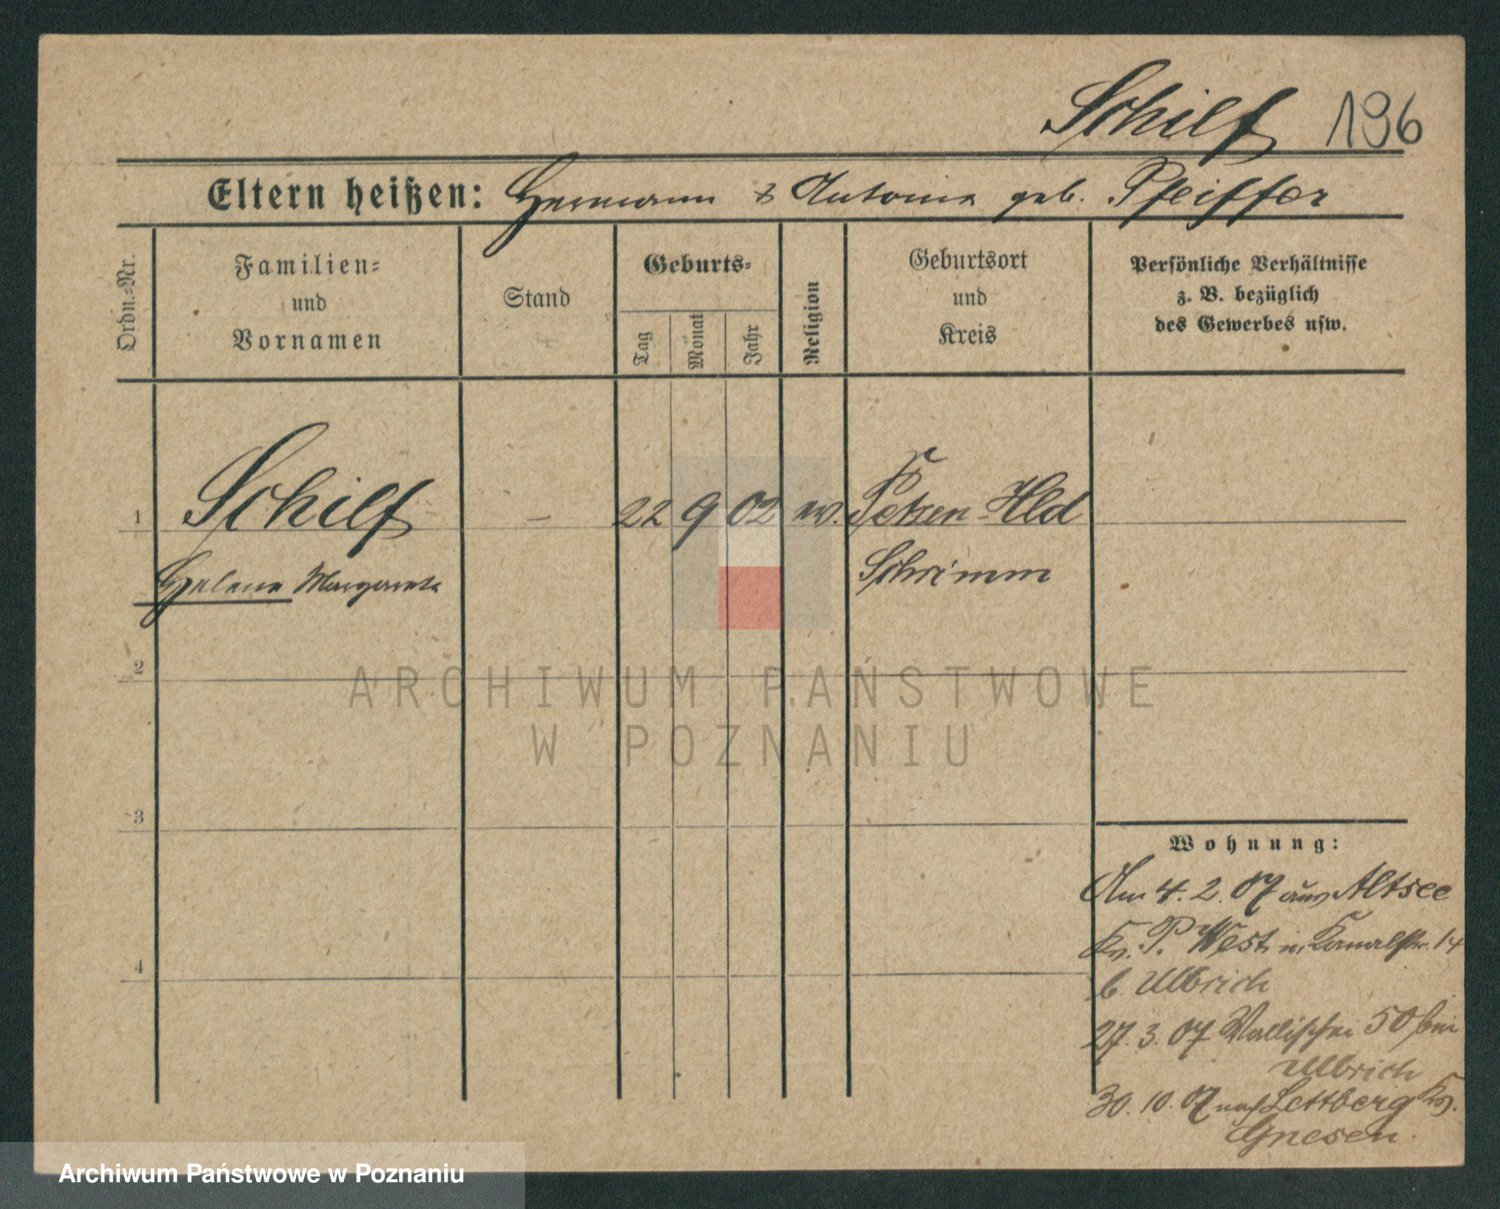 Schilf 196
Eltern heißen: Hermann & Antonie geb. Pfeiffer
Ordn.-Nr.
Familien-
und
Vornamen
Stand
Geburts-
Tag
Monat
Jahr
Religion
Geburtsort
und
Kreis
Persönliche Verhältnisse
z. B. bezüglich
des Gewerbes usw.
1 Schilf - 22 9 02 ev. Petzen-Hld
Helene Margarete Schrimm
2
3
4
Wohnung:
Am 4. 2. 07 aus Altsee
Kr. P. West n. Kanalstr. 14
b. Ulbrich
27. 3. 07 Wallischei 50 bei
Ulbrich
30. 10. 07 nach Lettberg Kr.
Gnesen.
ARCHIWUM PAŃSTWOWE
W POZNANIU
Archiwum Państwowe w Poznaniu